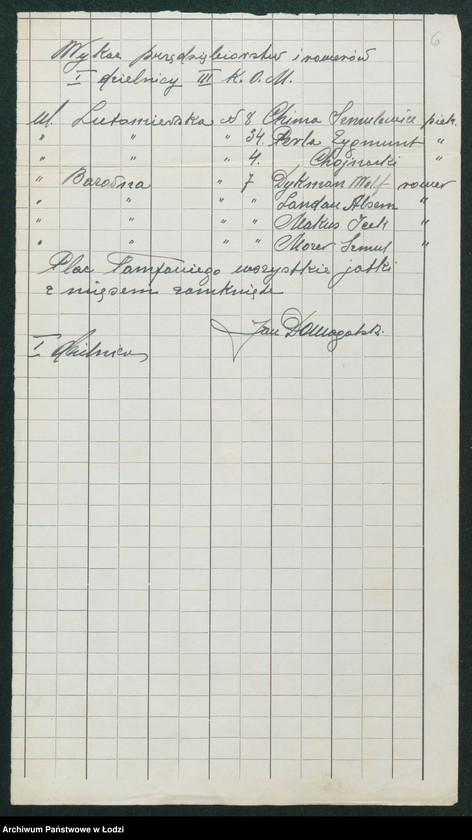 6
Wykaz przedsiębiorstw i rowerów
I dzielnicy III K.O.M.
ul. Lutomierska № 8 Chima Szmulewicz piek.
" " " 34. Perla Zygmunt "
" " " 4. Chojnacki "
" Barodna " 7 Dykman Wolf rower
" " " " Landau Absem "
" " " " Makus Icek "
" " " " Morer Szmul "
Plac wszystkie jatki
z mięsem zamknięte
Jan Domagalski.
I dzielnica
Archiwum Państwowe w Łodzi